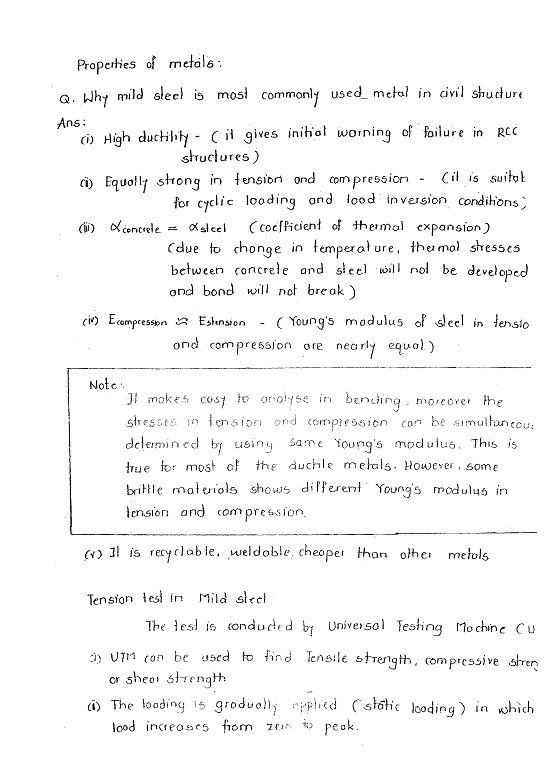 Properties of metals:
Q. Why mild steel is most commonly used metal in civil structure
Ans:
(i) High ductility - (it gives initial warning of failure in RCC
structures)
(ii) Equally strong in tension and compression - (it is suitab
for cyclic loading and load inversion conditions)
(iii) αconcrete = αsteel (coefficient of thermal expansion)
(due to change in temperature, thermal stresses
between concrete and steel will not be developed
and bond will not break)
(iv) Ecompression ≈ Etension - (Young's modulus of steel in tensio
and compression are nearly equal)
Note:
It makes easy to analyse in bending, moreover the
stresses in tension and compression can be simultaneous
determined by using same Young's modulus. This is
true for most of the ductile metals. However, some
brittle materials shows different Young's modulus in
tension and compression.
(v) It is recyclable, weldable, cheaper than other metals
Tension test in Mild steel
The test is conducted by Universal Testing Machine (U
i) UTM can be used to find Tensile strength, compressive stren
or shear strength
(ii) The loading is gradually applied (static loading) in which
load increases from zero to peak.